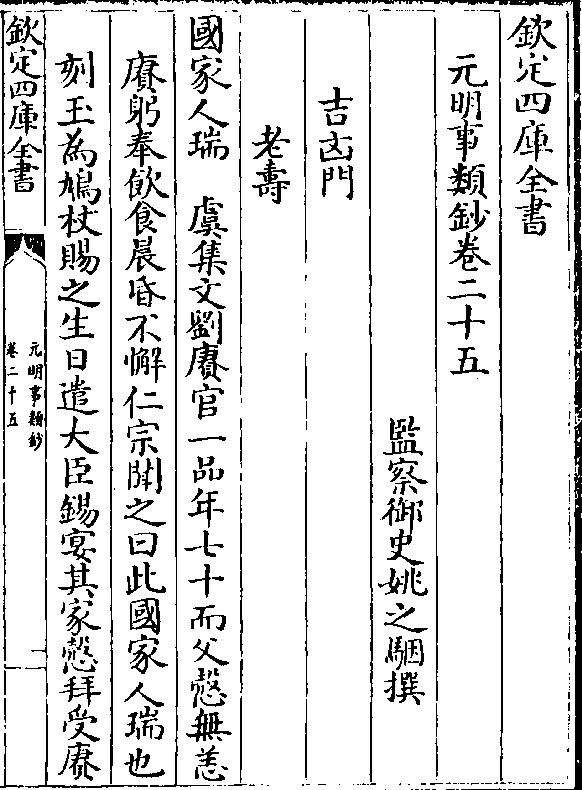 欽定四庫全書
元明事類鈔卷二十五
監察御史姚之駰撰
吉凶門
老壽
國家人瑞　虞集文劉賡官一品年七十而父慤無恙
賡躬奉飲食晨昏不懈仁宗聞之曰此國家人瑞也
刻玉為鳩杖賜之生日遣大臣錫宴其家慤拜受賡
欽定四庫全書
元明事類鈔
卷二十五
二